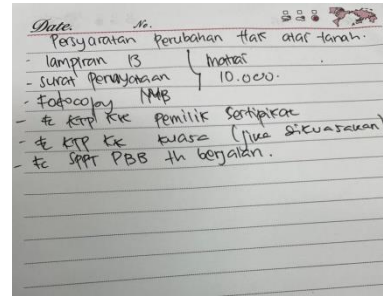 Date. No.
Persyaratan Perubahan Hak atas tanah.
- lampiran 13 } matrai
- surat pernyataan } 10.000.
- Fotocopy NIB
- fc KTP KK pemilik Sertipikat
- fc KTP KK kuasa (jika dikuasakan)
- fc SPPT PBB th berjalan.